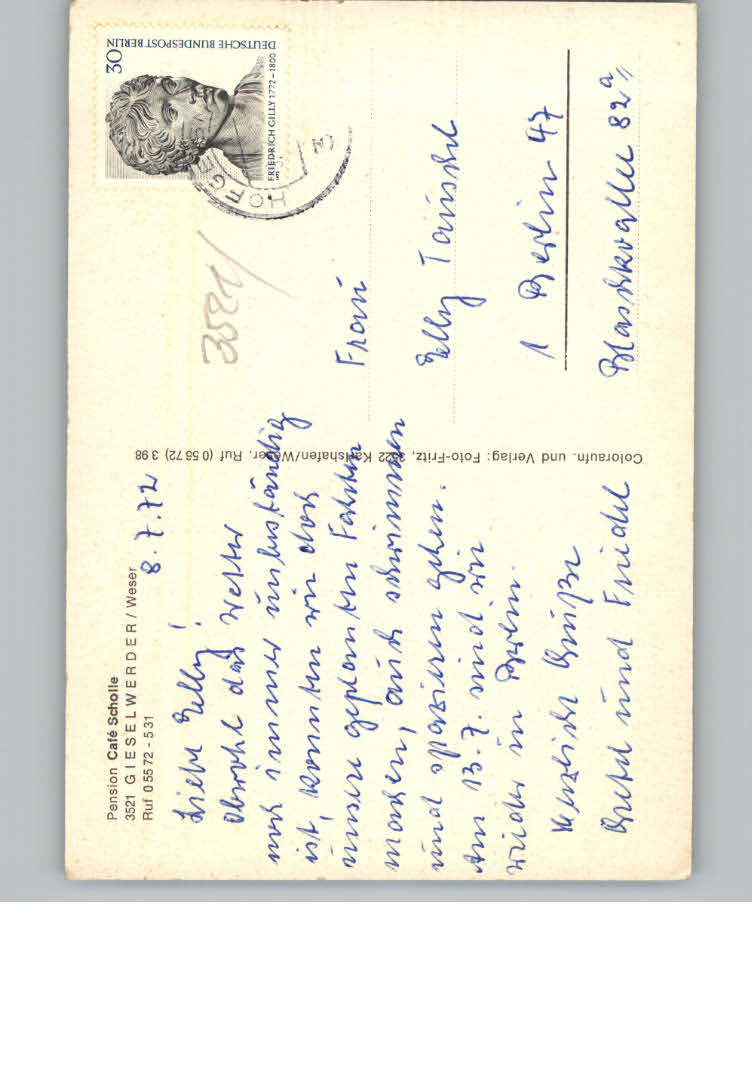 Pension Café Scholle
3521 GIESELWERDER / Weser
Ruf 0 55 72 - 5 31
8.7.72
Liebe Elly!
Obwohl das Wetter
noch immer unbeständig
ist, konnten wir doch
unsere geplanten Fahrten
machen, auch schwimmen
und spazieren gehen.
Am 13.7. sind wir
wieder in Berlin.
Herzliche Grüße
Gretel und Friedel
Coloraufn. und Verlag: Foto-Fritz, 3522 Karlshafen/Weser, Ruf (0 56 72) 3 98
DEUTSCHE BUNDESPOST BERLIN
30
FRIEDRICH GILLY 1772-1800
HOFGE
3521/
Frau
Elly Tauschel
1 Berlin 47
Blaschkoallee 82a